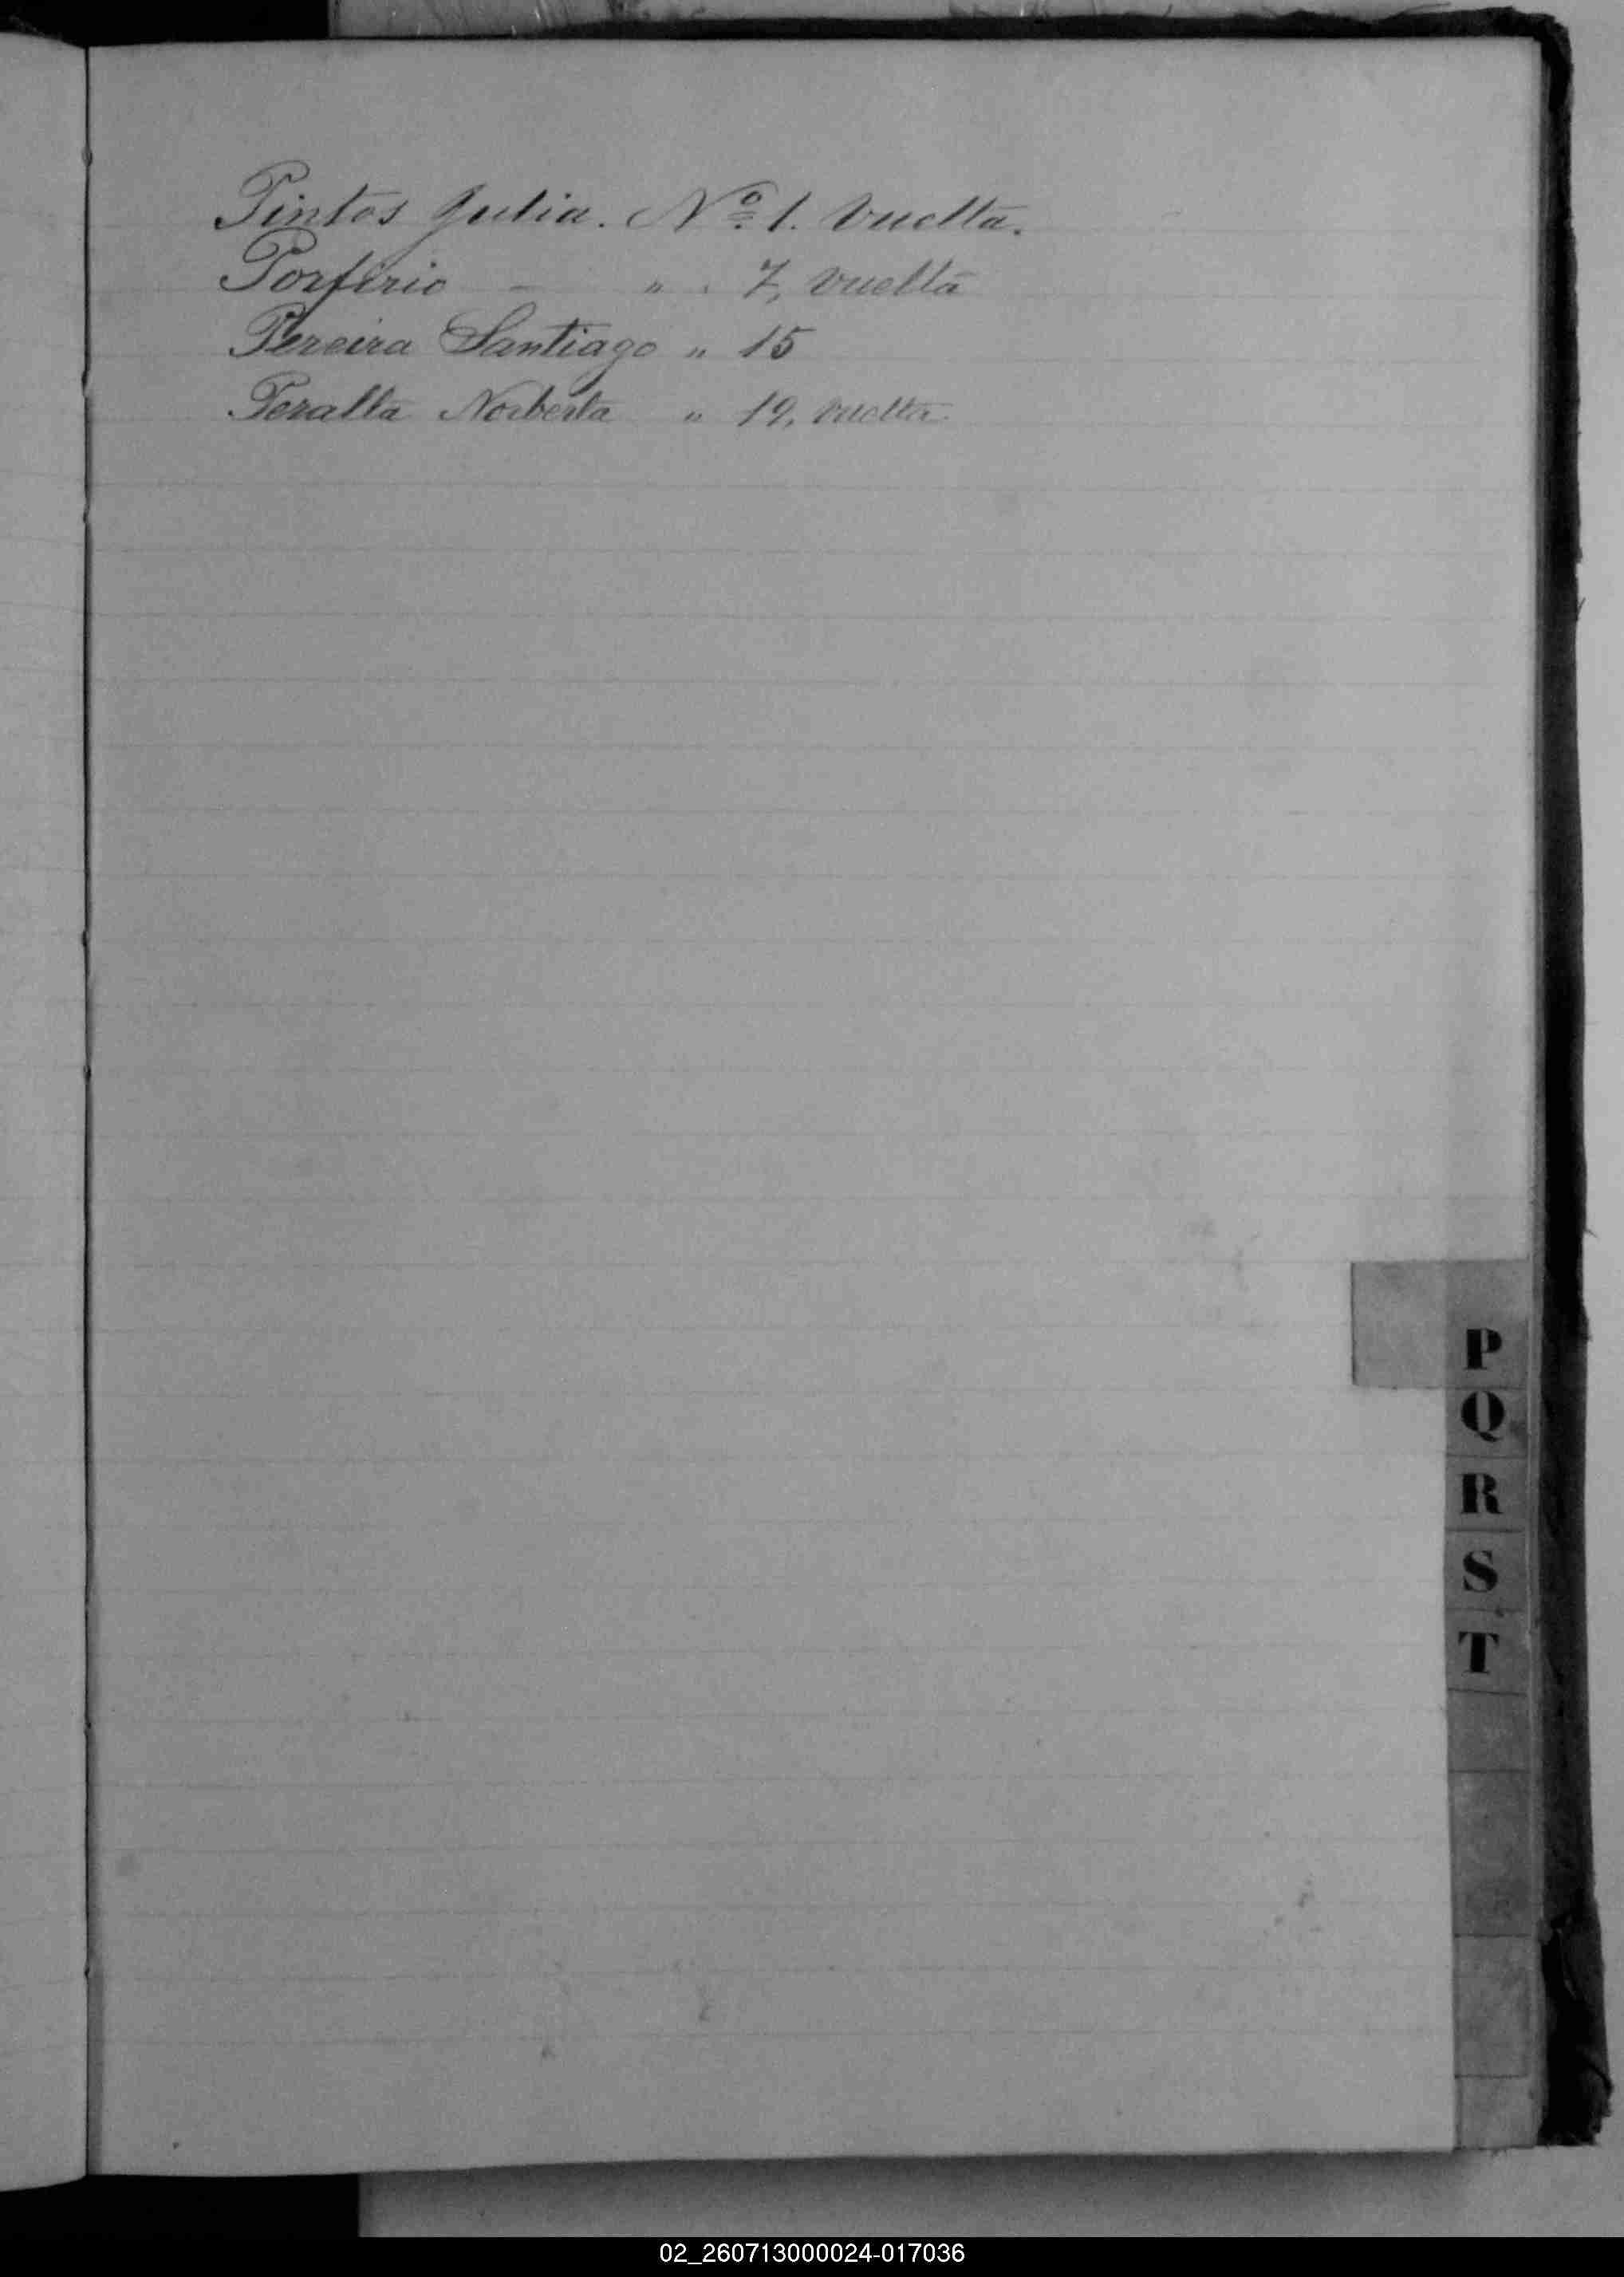 Pintos Julia. Nº 1. vuelta.
Porfirio - " . 7, vuelta
Pereira Santiago " 15
Peralta Norberta " 19, vuelta.
P
Q
R
S
T
02_260713000024-017036